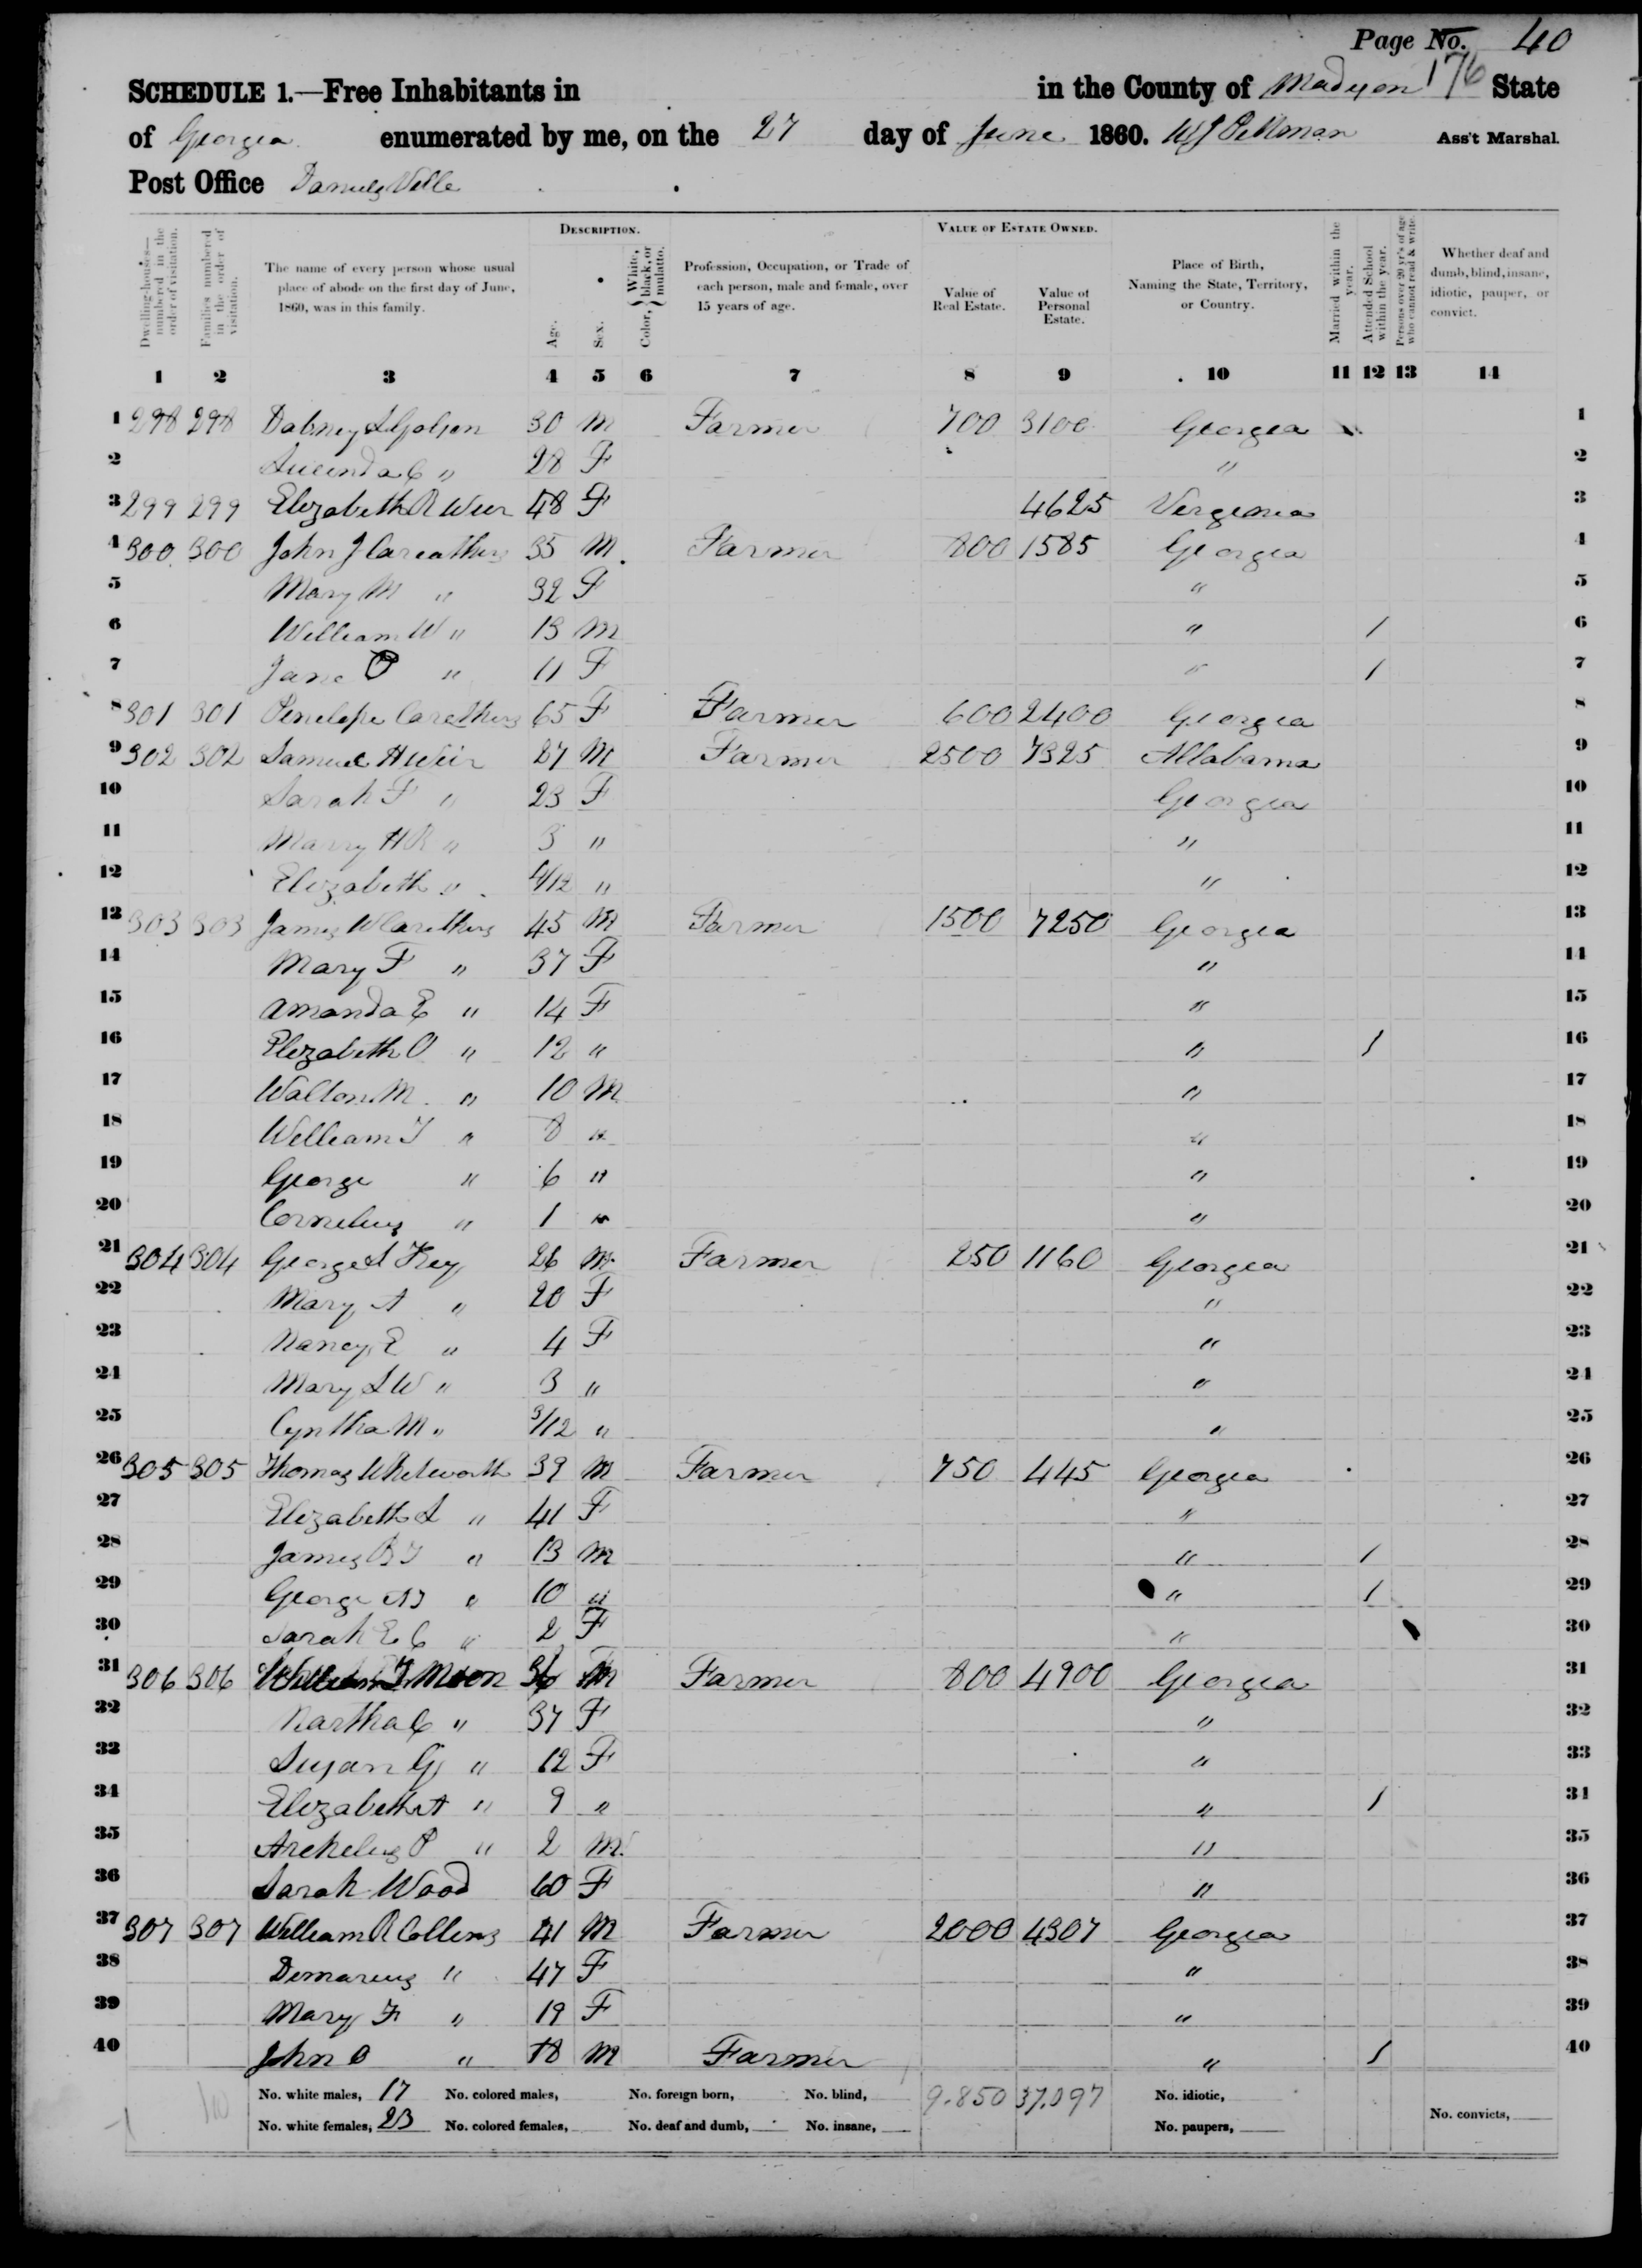 Page No. 40
176
SCHEDULE 1.—Free Inhabitants in in the County of Madison State
of Georgia enumerated by me, on the 27 day of June 1860. Ass't Marshal.
Post Office DanielsVille
Dwelling-houses—numbered in the order of visitation.
Families numbered in the order of visitation.
The name of every person whose usual place of abode on the first day of June, 1860, was in this family.
DESCRIPTION.
Age.
Sex.
Color, { White, black, or mulatto.
Profession, Occupation, or Trade of each person, male and female, over 15 years of age.
VALUE OF ESTATE OWNED.
Value of Real Estate.
Value of Personal Estate.
Place of Birth, Naming the State, Territory, or Country.
Married within the year.
Attended School within the year.
Persons over 20 yr's of age who cannot read & write.
Whether deaf and dumb, blind, insane, idiotic, pauper, or convict.
1 2 3 4 5 6 7 8 9 10 11 12 13 14
1 298 298 Dabney 30 M Farmer 700 3100 Georgia 1
2 " 28 F " 2
3 299 299 Elizabeth R Weer 48 F 4625 Virginia 3
4 300 300 John J Careathers 35 M Farmer 800 1585 Georgia 4
5 Mary M " 32 F " 5
6 William W " 13 M " 1 6
7 Jane " 11 F " 1 7
8 301 301 Penelope Carethers 65 F Farmer 600 2400 Georgia 8
9 302 302 Samuel H Weir 27 M Farmer 2500 7325 Allabama 9
10 Sarah F " 23 F Georgia 10
11 Marry H R " 3 " " 11
12 Elizabeth " 4/12 " " 12
13 303 303 James W Carethers 45 M Farmer 1500 7250 Georgia 13
14 Mary F " 37 F " 14
15 Amanda E " 14 F " 15
16 Elizabeth O " 12 " " 1 16
17 Walton M " 10 M " 17
18 William T " 8 " " 18
19 George " 6 " " 19
20 Cornelius " 1 " " 20
21 304 304 George S Key 26 M Farmer 250 1160 Georgia 21
22 Mary A " 20 F " 22
23 Nancy E " 4 F " 23
24 Mary S W " 3 " " 24
25 Cyntha M " 3/12 " " 25
26 305 305 Thomas Whitworth 39 M Farmer 750 445 Georgia 26
27 Elizabeth S " 41 F " 27
28 James B T " 13 M " 1 28
29 George " 10 " " 1 29
30 Sarah E C " 2 F " 30
31 306 306 William T Moon M Farmer 800 4900 Georgia 31
32 Martha C " 37 F " 32
33 Susan G " 12 F " 33
34 Elizabeth A " 9 " " 1 34
35 Archelus P " 2 M " 35
36 Sarah Wood 60 F " 36
37 307 307 William R Collins 41 M Farmer 2000 4307 Georgia 37
38 Demarius " 47 F " 38
39 Mary F " 19 F " 39
40 John O " 18 M Farmer " 1 40
No. white males, 17 No. colored males, No. foreign born, No. blind, 9.850 37.097 No. idiotic,
No. white females, 23 No. colored females, No. deaf and dumb, No. insane, No. paupers, No. convicts,